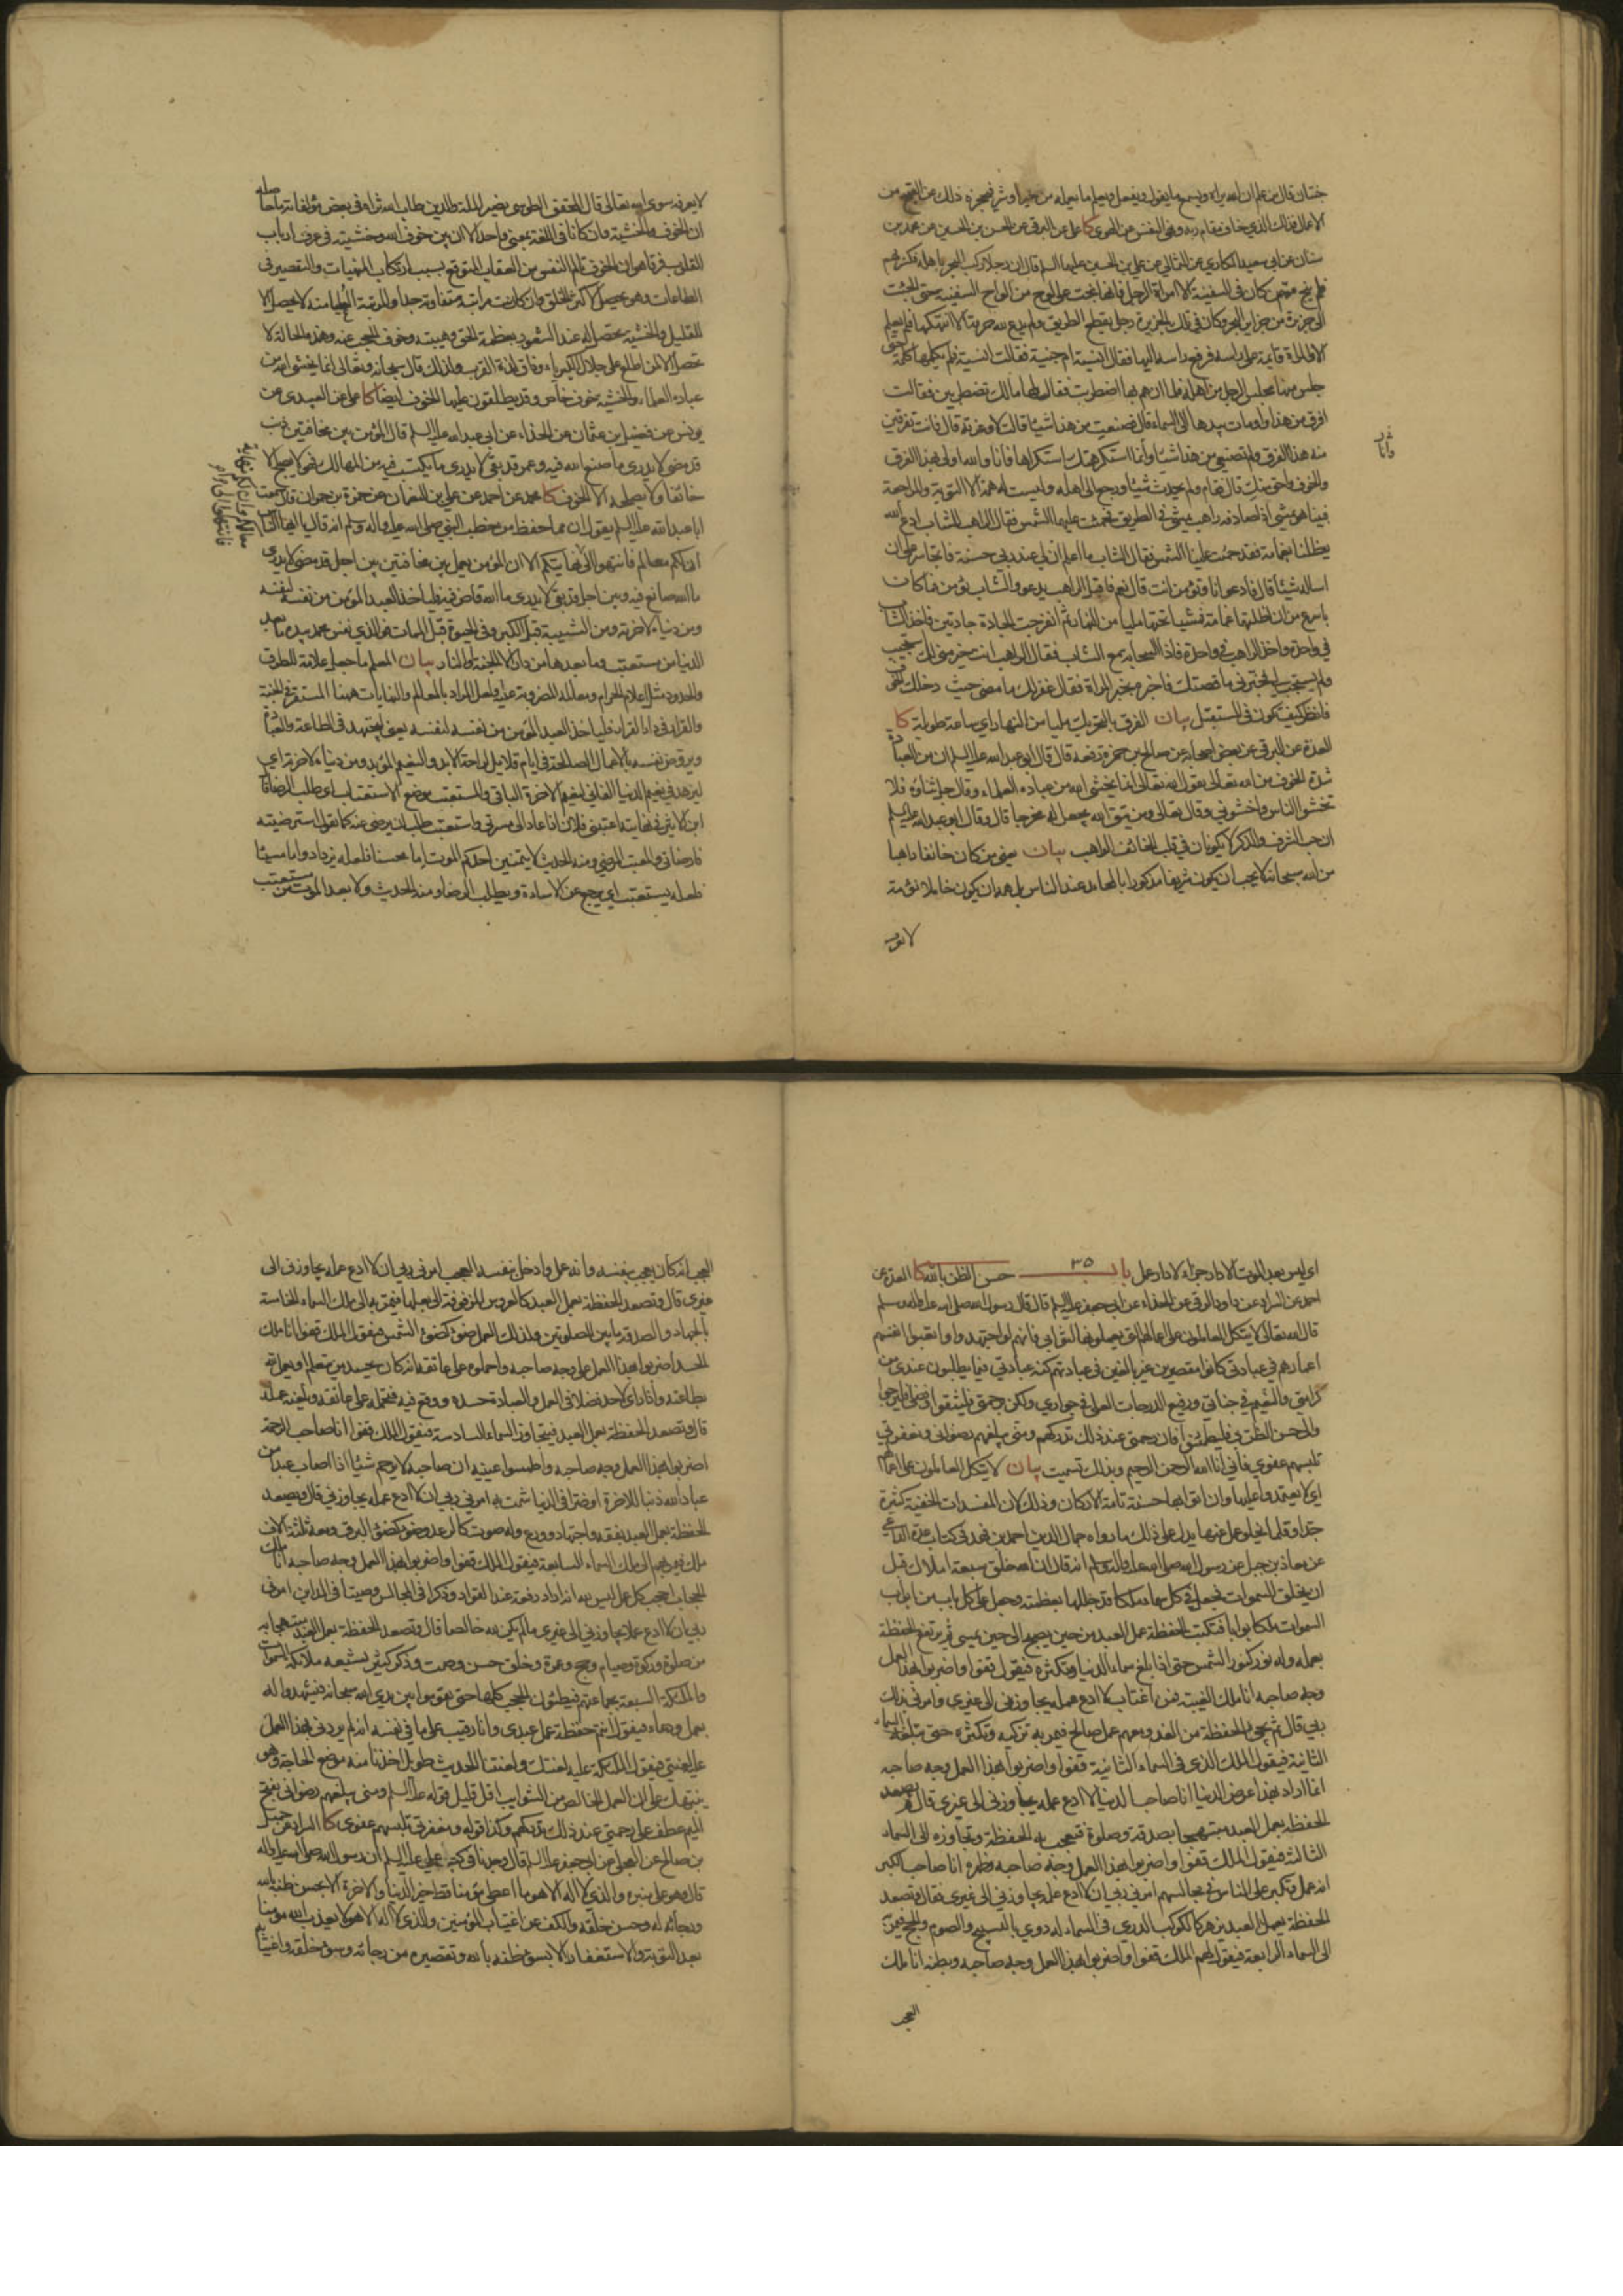 جنتان قال من علم ان الله يراه ويسمع ما يقول ويفعل ويعلم ما يعمله من خير او شر فيحجزه ذلك عن القبيح من
الاعمال فذلك الذي خاف مقام ربه ونهى النفس عن الهوى كا على عن البرقي عن الحسن بن الحسين عن محمد بن
سنان عن ابي سعيد المكاري عن الثمالي عن علي بن الحسين عليهما السلم قال ان رجلا ركب البحر باهله فكسر بهم
فلم ينج ممن كان في السفينة الا امراة الرجل فانها نجت على لوح من الواح السفينة حتى الجئت
الى جزيرة من جزاير البحر وكان في تلك الجزيرة رجل يقطع الطريق ولم يدع لله حرمة الا انتهكها فلم يعلم
الا والمراة قايمة على راسه فرفع راسه اليها فقال انسية ام جنية فقالت انسية فلم يكلمها كلمة حتى
جلس منها مجلس الرجل من اهله فلما ان هم بها اضطربت فقال لها مالك تضطربين فقالت
افرق من هذا واومات بيدها الى السماء قال فصنعت من هذا شيئا قالت لا وعزته قال فانت تفرقين
منه هذا الفرق ولم تصنعي من هذا شيئا وانما استكرهتك استكراها فانا والله اولى بهذا الفرق
والخوف واحق منك قال فقام ولم يحدث شيئا ورجع الى اهله وليست له همة الا التوبة والمراجعة
فبينا هو يمشي اذ صادفه راهب يمشي في الطريق فحميت عليهما الشمس فقال الراهب للشاب ادع الله
يظلنا بغمامة فقد حميت علينا الشمس فقال الشاب ما اعلم ان لي عند ربي حسنة فاتجاسر على ان
اساله شيئا قال فادعو انا وتؤمن انت قال نعم فاقبل الراهب يدعو والشاب يؤمن فما كان
باسرع من ان اظلتهما غمامة فمشيا تحتها مليا من النهار ثم انفرجت الجادة جادتين فاخذ الشاب
في واحدة واخذ الراهب في واحدة فاذا السحابة مع الشاب فقال الراهب انت خير مني لك استجيب
ولم يستجب لي فخبرني ما قصتك فاخبره بخبر المراة فقال غفر لك ما مضى حيث دخلك الخوف
فانظر كيف تكون فى المستقبل بيان الفرق بالتحريك مليا من النهار اي ساعة طويلة كا
العدة عن البرقي عن بعض اصحابه عن صالح بن حمزة رفعه قال قال ابو عبد الله عليه السلم ان من العبادة
شدة الخوف من الله تعالى يقول الله تعالى انما يخشى الله من عباده العلماء وقال جل ثناؤه فلا
تخشوا الناس واخشوني وقال تعالى ومن يتق الله يجعل له مخرجا قال وقال ابو عبد الله عليه السلم
ان حب الشرف والذكر لا يكونان في قلب الخائف الراهب بيان يعني من كان خائفا راهبا
من الله سبحانه لا يحب ان يكون شريفا مذكورا بالمحامد عند الناس بل يحب ان يكون خاملا نؤمة
لا يعرفه
لا يعرفه سوى الله تعالى قال المحقق الطوسي نصير الملة والدين طاب الله ثراه في بعض مؤلفاته ما حاصله
ان الخوف والخشية وان كانا في اللغة بمعنى واحد الا ان بين خوف الله وخشيته فى عرف ارباب
القلوب فرقا هو ان الخوف تالم النفس من العقاب المتوقع بسبب ارتكاب المنهيات والتقصير فى
الطاعات وهو يحصل لاكثر الخلق وان كانت مراتبه متفاوتة جدا والمرتبة العليا منه لا يحصل الا
للقليل والخشية يحصل له عند الشعور بعظمة الحق وهيبته وخوف الحجب عنه وهذه الحالة لا
تحصل الا لمن اطلع على جلال الكبرياء وذاق لذة القرب ولذلك قال سبحانه وتعالى انما يخشى الله من
عباده العلماء والخشية خوف خاص وقد يطلقون عليها الخوف ايضا كا على عن العبيدى عن
يونس عن فضيل بن عثمان عن الحذاء عن ابى عبد الله عليه السلم قال المؤمن بين مخافتين ذنب
قد مضى لا يدرى ما صنع الله فيه وعمر قد بقى لا يدرى ما يكتسب فيه من المهالك فهو لا يصبح الا
خائفا ولا يصلحه الا الخوف كا محمد عن احمد عن علي بن النعمان عن حمزة بن حمران قال سمعت
ابا عبد الله عليه السلم يقول ان مما حفظ من خطب النبي صلى الله عليه واله وسلم انه قال يا ايها الناس
ان لكم معالم فانتهوا الى نهايتكم الا ان المؤمن يعمل بين مخافتين بين اجل قد مضى لا يدرى
ما الله صانع فيه وبين اجل قد بقى لا يدرى ما الله قاض فيه فلياخذ العبد المؤمن من نفسه لنفسه
ومن دنياه لاخرته ومن الشبيبة قبل الكبر وفى الحيوة قبل الممات فوالذي نفس محمد بيده ما بعد
الدنيا من مستعتب وما بعدها من دار الا الجنة او النار بيان المعلم ما جعل علامة للطرق
والحدود مثل اعلام الحرام ومعالمه المضروبة عليه ولعل المراد بالمعالم والنهايات ههنا المستقر في الجنة
والقرار في دار القرار فلياخذ العبد المؤمن من نفسه لنفسه يعنى يجتهد فى الطاعة والعبادة
ويروض نفسه بالاعمال الصالحة في ايام قلايل لراحة الابد والنعيم المؤبد ومن دنياه لاخرته اي
ليزهد في نعيم الدنيا الفاني لنعيم الاخرة الباقي والمستعتب موضع الاستعتاب اى طلب الرضا قال
ابن الاثير في نهايته اعتبني فلان اذا عاد الى مسرتي واستعتب طلب ان يرضى عنه كما تقول استرضيته
فارضاني والمعتب المرضي ومنه الحديث لا يتمنين احدكم الموت اما محسنا فلعله يزداد واما مسيئا
فلعله يستعتب اي يرجع عن الاساءة ويطلب الرضا ومنه الحديث ولا بعد الموت من مستعتب
اى ليس بعد الموت الا دار جزاء لا دار عمل باب ٣٥ حسن الظن بالله كا العدة عن
احمد عن السراد عن داود الرقي عن الحذاء عن ابي جعفر عليه السلم قال قال رسول الله صلى الله عليه واله وسلم
قال الله تعالى لا يتكل العاملون على اعمالهم التي يعملونها لثوابي فانهم لو اجتهدوا واتعبوا انفسهم
اعمارهم في عبادتي كانوا مقصرين غير بالغين في عبادتهم كنه عبادتي فيما يطلبون عندي من
كرامتي والنعيم في جناتي ورفيع الدرجات العلى في جواري ولكن برحمتي فليثقوا وفضلي فليرجوا
والى حسن الظن بي فليطمئنوا فان رحمتي عند ذلك تدركهم ومني يبلغهم رضواني ومغفرتي
تلبسهم عفوي فاني انا الله الرحمن الرحيم وبذلك تسميت بيان لا يتكل العاملون على اعمالهم
اي لا يعتمدوا عليها وان اتوا بها حسنة تامة الاركان وذلك لان المفسدات الخفية كثيرة
جدا وقلما يخلو عمل عنها يدل على ذلك ما رواه جمال الدين احمد بن فهد في كتاب عدة الداعي
عن معاذ بن جبل عن رسول الله صلى الله عليه واله وسلم انه قال ان الله خلق سبعة املاك قبل
ان يخلق السموات فجعل في كل سماء ملكا قد جللها بعظمته وجعل على كل باب من ابواب
السموات ملكا بوابا فتكتب الحفظة عمل العبد من حين يصبح الى حين يمسي ثم يرتفع الحفظة
بعمله وله نور كنور الشمس حتى اذا بلغ سماء الدنيا فتكثره فيقول قفوا واضربوا بهذا العمل
وجه صاحبه انا ملك الغيبة فمن اغتاب لا ادع عمله يجاوزني الى غيري وامرني بذلك
ربي قال ثم يجيء الحفظة من الغد ومعهم عمل صالح فيمر به تزكيه وتكثره حتى تبلغ السماء
الثانية فيقول الملك الذي فى السماء الثانية قفوا واضربوا بهذا العمل وجه صاحبه
انما اراد بهذا عرض الدنيا انا صاحب الدنيا لا ادع عمله يجاوزني الى غيري قال ثم يصعد
الحفظة بعمل العبد مبتهجا بصدقة وصلوة فتعجب به الحفظة وتجاوزه الى السماء
الثالثة فيقول الملك قفوا واضربوا بهذا العمل وجه صاحبه وظهره انا صاحب الكبر
انه عمل وتكبر على الناس في مجالسهم امرني ربي ان لا ادع عمله يجاوزني الى غيري فقال وتصعد
الحفظة بعمل العبد يزهر كالكوكب الدري فى السماء له دوي بالتسبيح والصوم والحج فيمر
الى السماء الرابعة فيقول لهم الملك قفوا واضربوا بهذا العمل وجه صاحبه وبطنه انا ملك
العجب
العجب انه كان يعجب بنفسه وانه عمل وادخل نفسه العجب امرني ربي ان لا ادع عمله يجاوزني الى
غيري قال وتصعد الحفظة بعمل العبد كالعروس المزفوفة الى بعلها فيمر به الى ملك السماء الخامسة
بالجهاد والصدقة ما بين الصلوتين ولذلك العمل ضوء كضوء الشمس فيقول الملك قفوا انا ملك
الحسد اضربوا بهذا العمل على وجه صاحبه واحملوه على عاتقه انه كان يحسد من يتعلم او يعمل لله
بطاعته واذا راى لاحد فضلا فى العمل والعبادة حسده ووقع فيه فيحمله على عاتقه ويلعنه عمله
قال وتصعد الحفظة بعمل العبد فيتجاوز السماء السادسة فيقول الملك قفوا انا صاحب الرحمة
اضربوا بهذا العمل وجه صاحبه واطمسوا عينيه ان صاحبه لا يرحم شيئا اذا اصاب عبدا من
عباد الله ذنبا للاخرة او ضرا في الدنيا شمت به امرني ربي ان لا ادع عمله يجاوزني قال وتصعد
الحفظة بعمل العبد بفقه واجتهاد وورع وله صوت كالرعد وضوء كضوء البرق ومعه ثلثة الاف
ملك فيمر بهم الى ملك السماء السابعة فيقول الملك قفوا واضربوا بهذا العمل وجه صاحبه انا ملك
الحجاب احجب كل عمل ليس لله انه اراد رفعة عند القواد وذكرا فى المجالس وصيتا فى المداين امرني
ربي ان لا ادع عملا يجاوزني الى غيري ما لم يكن لله خالصا قال وتصعد الحفظة بعمل العبد مبتهجا به
من صلوة وزكوة وصيام وحج وعمرة وخلق حسن وصمت وذكر كثير تشيعه ملائكة السموات
والملئكة السبعة بجماعتهم فيطئون الحجب كلها حتى يقوموا بين يدي الله سبحانه فيشهدوا له
بعمل ودعاء فيقول انتم حفظة عمل عبدي وانا رقيب على ما في نفسه انه لم يردني بهذا العمل
عليه لعنتي فيقول الملئكة عليه لعنتك ولعنتنا الحديث طويل اخذنا منه موضع الحاجة وهو
ينبهك على ان العمل الخالص من الشوايب اقل قليل قوله عليه السلم ومني يبلغهم رضواني بفتح
الميم عطف على رحمتي عند ذلك تدركهم وكذا قوله ومغفرتي تلبسهم عفوي كا السراد عن جميل
بن صالح عن العجلي عن ابي جعفر عليه السلم قال وجدنا في كتاب علي عليه السلم ان رسول الله صلى الله عليه واله
قال وهو على منبره والذي لا اله الا هو ما اعطي مؤمن قط خير الدنيا والاخرة الا بحسن ظنه بالله
ورجائه له وحسن خلقه والكف عن اغتياب المؤمنين والذي لا اله الا هو لا يعذب الله مؤمنا
بعد التوبة والاستغفار الا بسوء ظنه بالله وتقصيره من رجائه وسوء خلقه واغتيابه